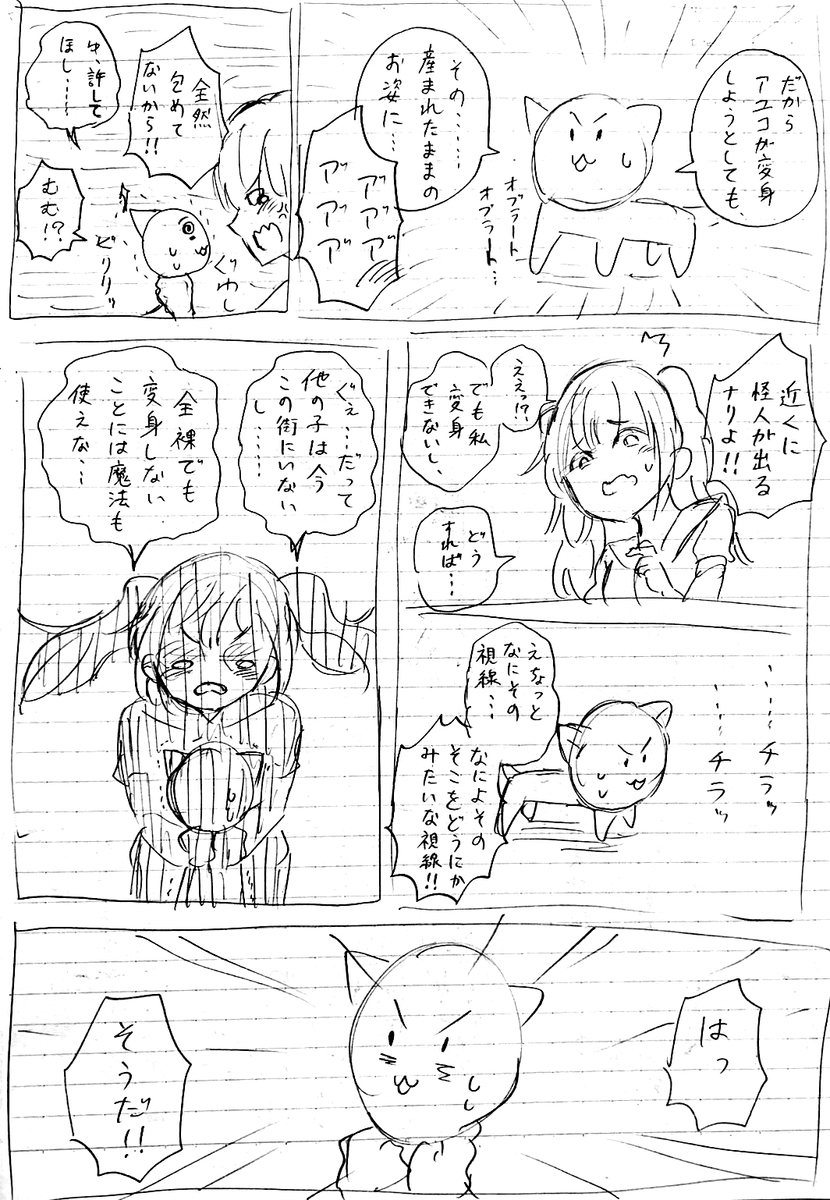 だから
アユコが変身
しようとしても、
その……
産まれたままの
お姿に…
オブラート
オブラート…
アアア
アアア
全然
包めて
ないから!!
ゆ、許して
ほし……
むむ!?
ビリリッ
ぐわし
近くに
怪人が出る
ナリよ!!
ええっ!?
でも私
変身
できないし、
どう
すれば…
……チラッ
……チラッ
えなっと
なにその
視線…
なによその
そこをどうにか
みたいな視線!!
ぐぇ…だって
他の子は今
この街にいない
し……
全裸でも
変身しない
ことには魔法も
使えな…
はっ
そうだ!!